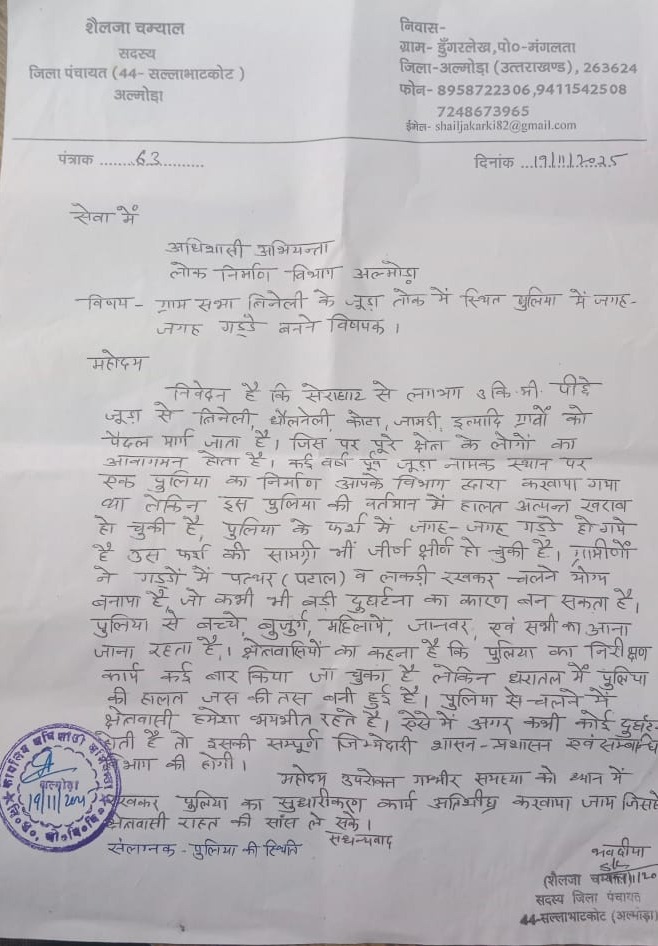 शैलजा चम्याल
सदस्य
जिला पंचायत (44- सल्लाभाटकोट )
अल्मोड़ा
निवास-
ग्राम- डुँगरलेख,पो०-मंगलता
जिला-अल्मोड़ा (उत्तराखण्ड), 263624
फोन- 8958722306,9411542508
7248673965
ईमेल- shailjakarki82@gmail.com
पंत्राक ........63...........
दिनांक ...19/11/2025
सेवा में
अधिशासी अभियन्ता
लोक निर्माण विभाग अल्मोड़ा
विषय - ग्राम सभा लिनेली के जूड़ा तोक में स्थित पुलिया में जगह-
जगह गड्डे बनने विषयक ।
महोदय
निवेदन है कि सेराघाट से लगभग 3 कि.मी. पीछे
जूड़ा से लिनेली, धौलनेली, कोटा, जामडी, इत्यादि ग्रावों को
पैदल मार्ग जाता है। जिस पर पूरे क्षेत्र के लोगों का
आवागमन होता है। कई वर्ष पूर्व जूड़ा नामक स्थान पर
एक पुलिया का निर्माण आपके विभाग द्वारा करवाया गया
था लेकिन इस पुलिया की वर्तमान में हालत अत्यन्त खराब
हो चुकी है, पुलिया के फर्श में जगह-जगह गड्डे हो गये
है उस फर्श की सामग्री भी जीर्ण क्षीर्ण हो चुकी है। ग्रामीणों
ने गड्डों में पत्थर (पटाल) व लकड़ी रखकर चलने योग्य
बनाया है, जो कभी भी बड़ी दुर्घटना का कारण बन सकता है।
पुलिया से बच्चे, बुजुर्ग, महिलायें, जानवर, एवं सभी का आना
जाना रहता है। क्षेतवासियों का कहना है कि पुलिया का निरीक्षण
कार्य कई बार किया जा चुका है लेकिन धरातल में पुलिया
की हालत जस की तस बनी हुई है। पुलिया से चलने में
क्षेतवासी हमेशा भयभीत रहते है। ऐसे में अगर कभी कोई दुर्घट-
होती है तो इसकी सम्पूर्ण जिम्मेदारी शासन-प्रशासन एवं सम्बन्धि
विभाग की होगी।
महोदय उपरोक्त गम्भीर समस्या को ध्यान में
रखकर पुलिया का सुधारीकरण कार्य अतिशीघ्र करवाया जाय जिससे
क्षेतवासी राहत की सांस ले सके।
सधन्यवाद
संलग्नक - पुलिया की स्थिति
अल्मोड़ा
19/11/2025
भवदीया
(शैलजा चम्याल)
सदस्य जिला पंचायत
44-सल्लाभाटकोट (अल्मोड़ा)